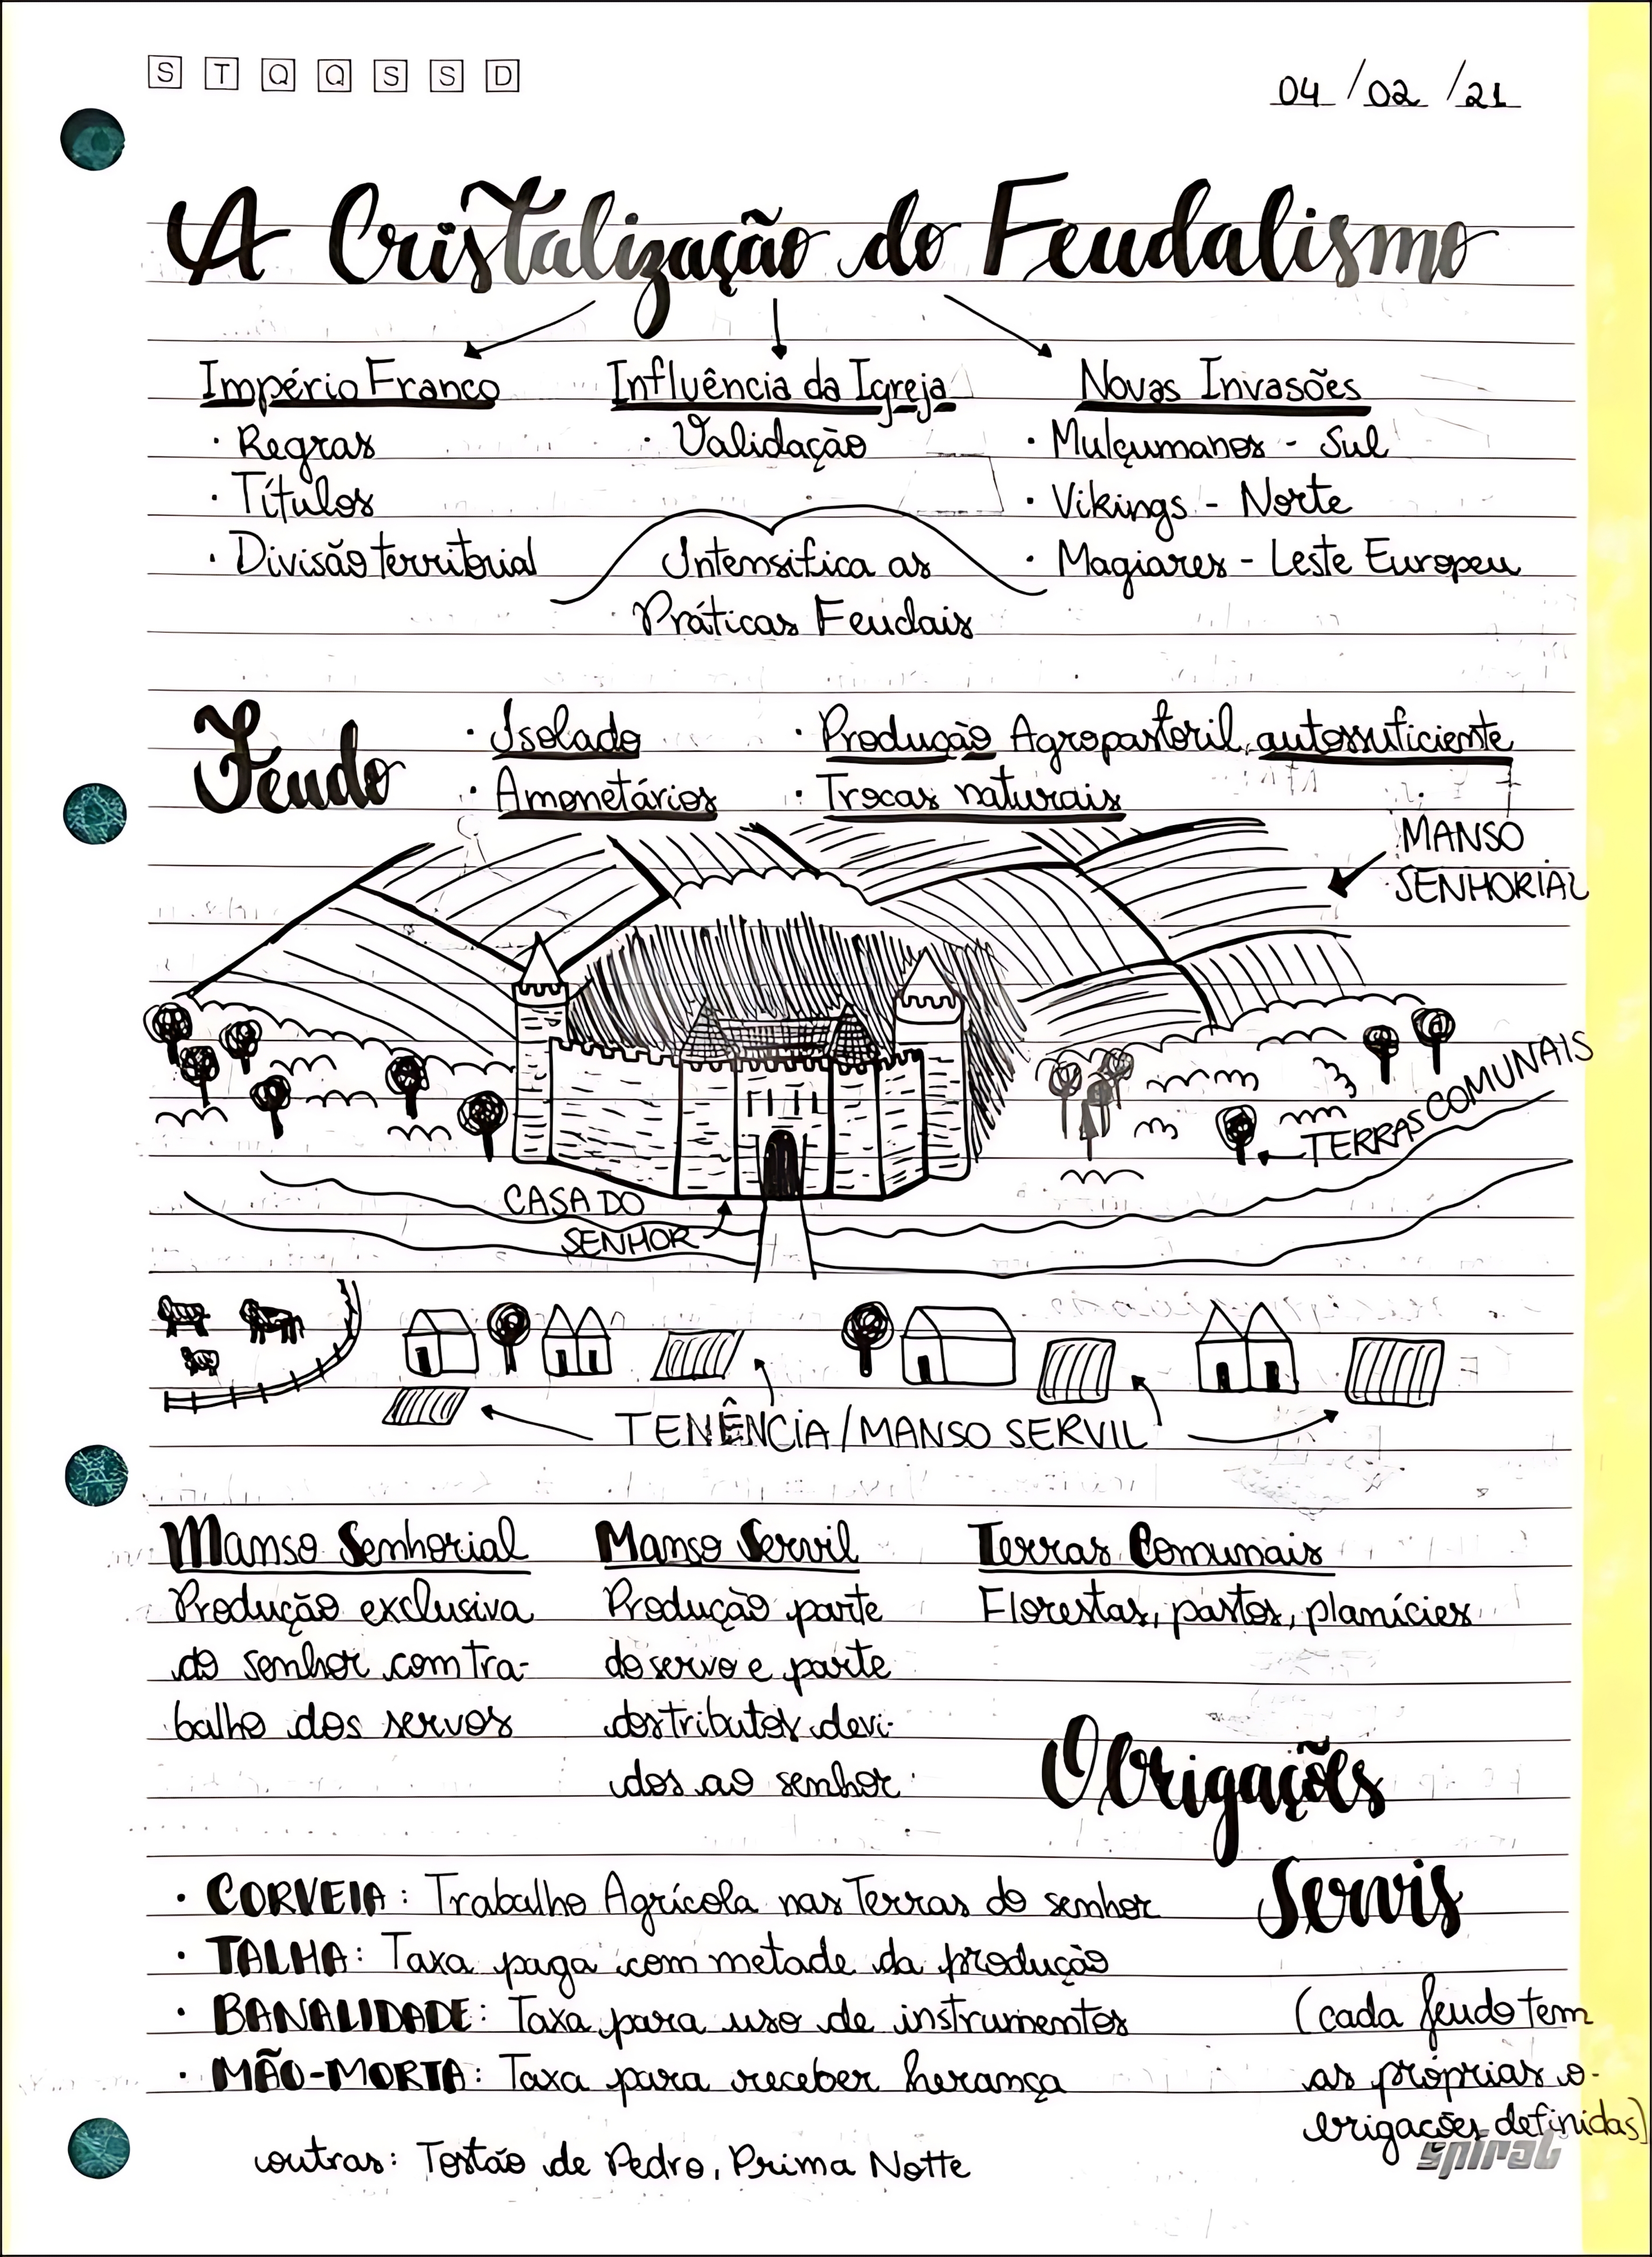 S T Q Q S S D
04 / 02 / 21
A Cristalização do Feudalismo
Império Franco
· Regras
· Títulos
· Divisão territorial
Influência da Igreja
· Validação
Novas Invasões
· Mulçumanos - Sul
· Vikings - Norte
· Magiares - Leste Europeu
Intensifica as
Práticas Feudais
Feudo
· Isolado
· Amonetários
· Produção Agropastoril, autossuficiente
· Trocas naturais
MANSO
SENHORIAL
TERRAS COMUNAIS
CASA DO
SENHOR
TENÊNCIA / MANSO SERVIL
Manso Senhorial
Produção exclusiva
do senhor com tra-
balho dos servos
Manso Servil
Produção parte
do servo e parte
dos tributos devi-
dos ao senhor
Terras Comunais
Florestas, pastos, planícies
Obrigações
Servis
(cada feudo tem
as próprias o-
brigações definidas)
· CORVEIA: Trabalho Agrícola nas Terras do senhor
· TALHA: Taxa paga com metade da produção
· BANALIDADE: Taxa para uso de instrumentos
· MÃO-MORTA: Taxa para receber herança
outras: Tostão de Pedro, Prima Notte
spiral